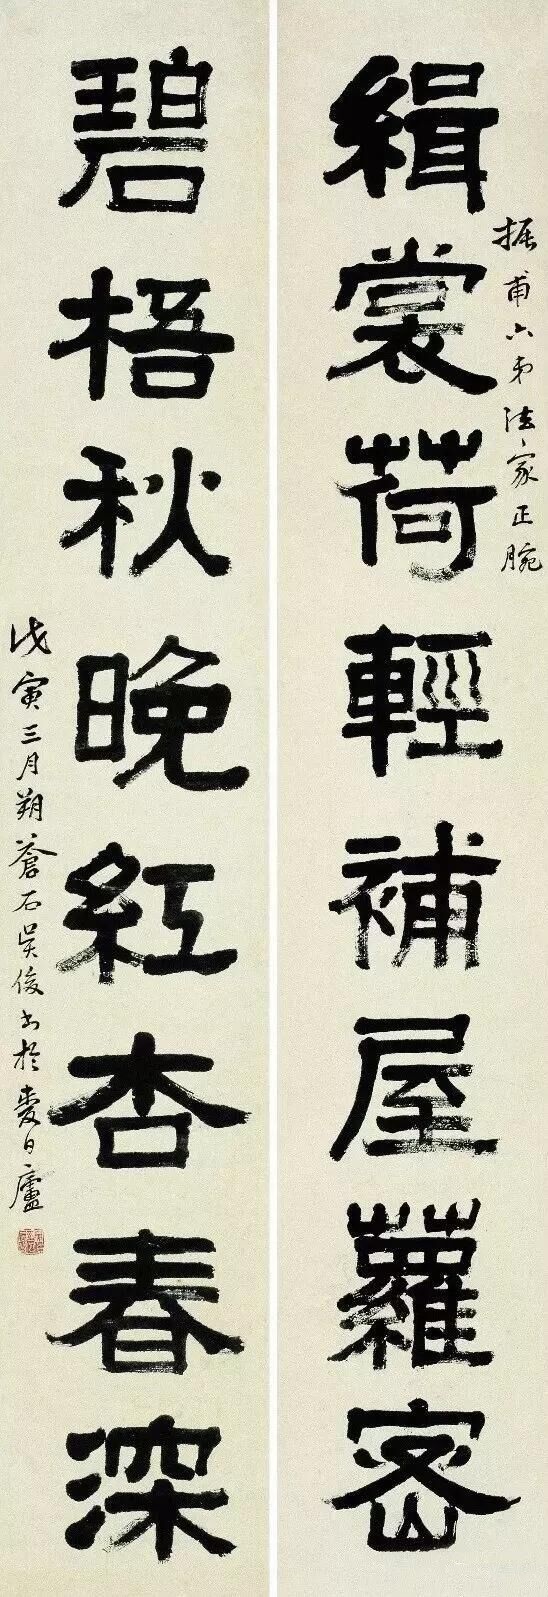 振甫六弟法家正腕
緝裳荷輕補屋蘿密
碧梧秋晚紅杏春深
戊寅三月朔蒼石吳俊書於愛日廬